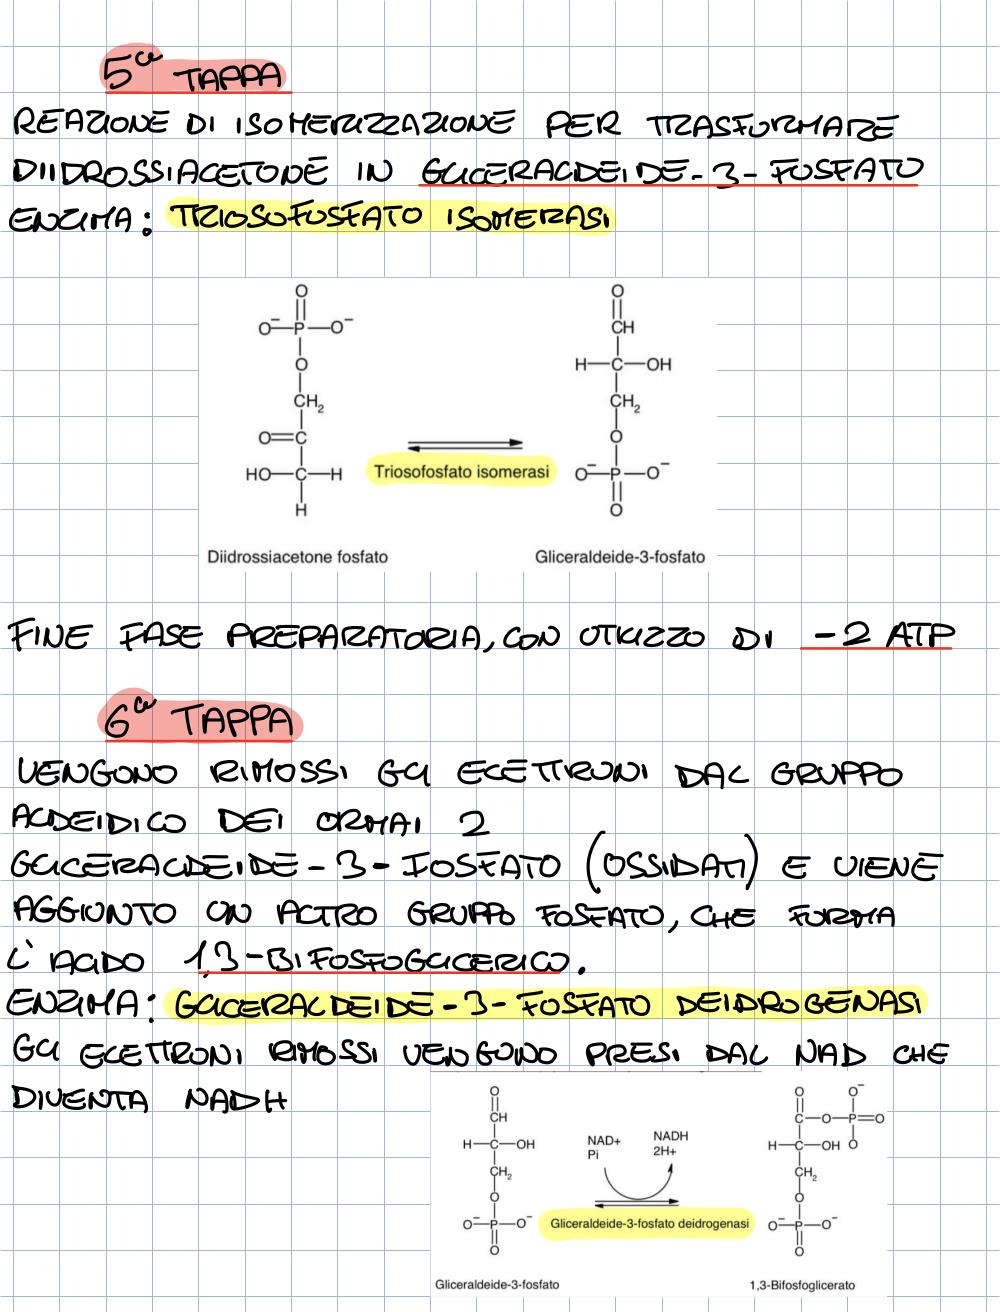 5ª TAPPA
REAZIONE DI ISOMERIZZAZIONE PER TRASFORMARE
DIIDROSSIACETONE IN GLICERALDEIDE-3-FOSFATO
ENZIMA: TRIOSOFOSFATO ISOMERASI
O
O⁻—P—O⁻
O
CH₂
O=C
HO—C—H
H
Triosofosfato isomerasi
O
CH
H—C—OH
CH₂
O
O⁻—P—O⁻
O
Diidrossiacetone fosfato
Gliceraldeide-3-fosfato
FINE FASE PREPARATORIA, CON UTILIZZO DI -2 ATP
6ª TAPPA
VENGONO RIMOSSI GLI ELETTRONI DAL GRUPPO
ALDEIDICO DEI ORMAI 2
GLICERALDEIDE-3-FOSFATO (OSSIDATI) E VIENE
AGGIUNTO UN ALTRO GRUPPO FOSFATO, CHE FORMA
L'ACIDO 1,3-BIFOSFOGLICERICO.
ENZIMA: GLICERALDEIDE-3-FOSFATO DEIDROGENASI
GLI ELETTRONI RIMOSSI VENGONO PRESI DAL NAD CHE
DIVENTA NADH
O
CH
H—C—OH
CH₂
O
O⁻—P—O⁻
O
NAD+
Pi
NADH
2H+
Gliceraldeide-3-fosfato deidrogenasi
O O⁻
C—O—P=O
H—C—OH O
CH₂
O
O⁻—P—O⁻
O
Gliceraldeide-3-fosfato
1,3-Bifosfoglicerato